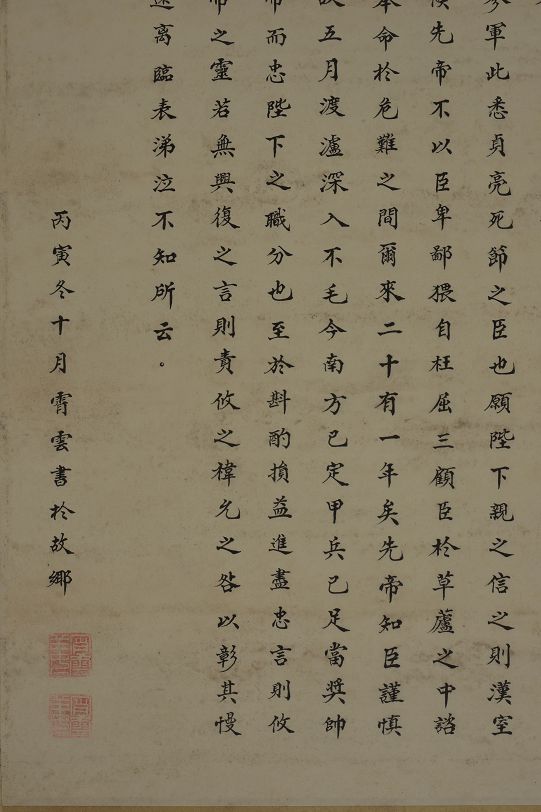 參軍此悉貞亮死節之臣也願陛下親之信之則漢室
侯先帝不以臣卑鄙猥自枉屈三顧臣於草蘆之中諮
奉命於危難之間爾來二十有一年矣先帝知臣謹慎
故五月渡瀘深入不毛今南方已定甲兵已足當獎帥
帝而忠陛下之職分也至於斟酌損益進盡忠言則攸
帝之靈若無興復之言則責攸之褘允之咎以彰其慢
遠离臨表涕泣不知所云。
丙寅冬十月霄雲書於故鄉